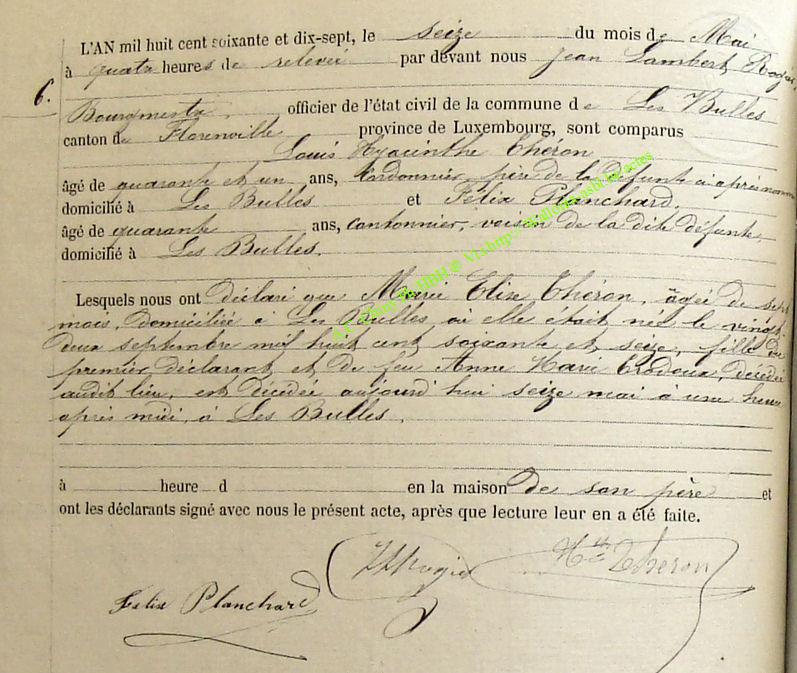 L'AN mil huit cent soixante et dix-sept, le seize du mois de Mai
à quatre heures de relevée par devant nous Jean Lambert Rogier,
6.
Bourgmestre, officier de l'état civil de la commune de Les Bulles
canton de Florenville province de Luxembourg, sont comparus
Louis Hyacinthe Théron
âgé de quarante et un ans, Cordonnier, père de la défunte ci après nommée
domicilié à Les Bulles et Félix Planchard,
âgé de quarante ans, cantonnier, voisin de la dite défunte,
domicilié à Les Bulles.
Lesquels nous ont déclaré que Marie Elise Théron, âgée de sept
mois, domiciliée à Les Bulles, où elle était née le vingt
deux septembre mil huit cent soixante et seize, fille du
premier déclarant et de feu Anne Marie décédée
audit lieu, est décédée aujourd'hui seize mai à une heure
après midi, à Les Bulles.
à heure d en la maison de son père et
ont les déclarants signé avec nous le présent acte, après que lecture leur en a été faite.
JLRogier Hthe Theron
Felix Planchard